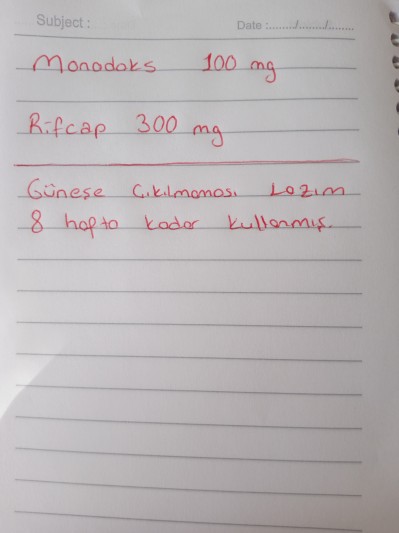 Subject :
Date :......./......./.......
Monodoks 100 mg
Rifcap 300 mg
Güneşe Çıkılmaması Lazım
8 hafta kadar kullanmış.